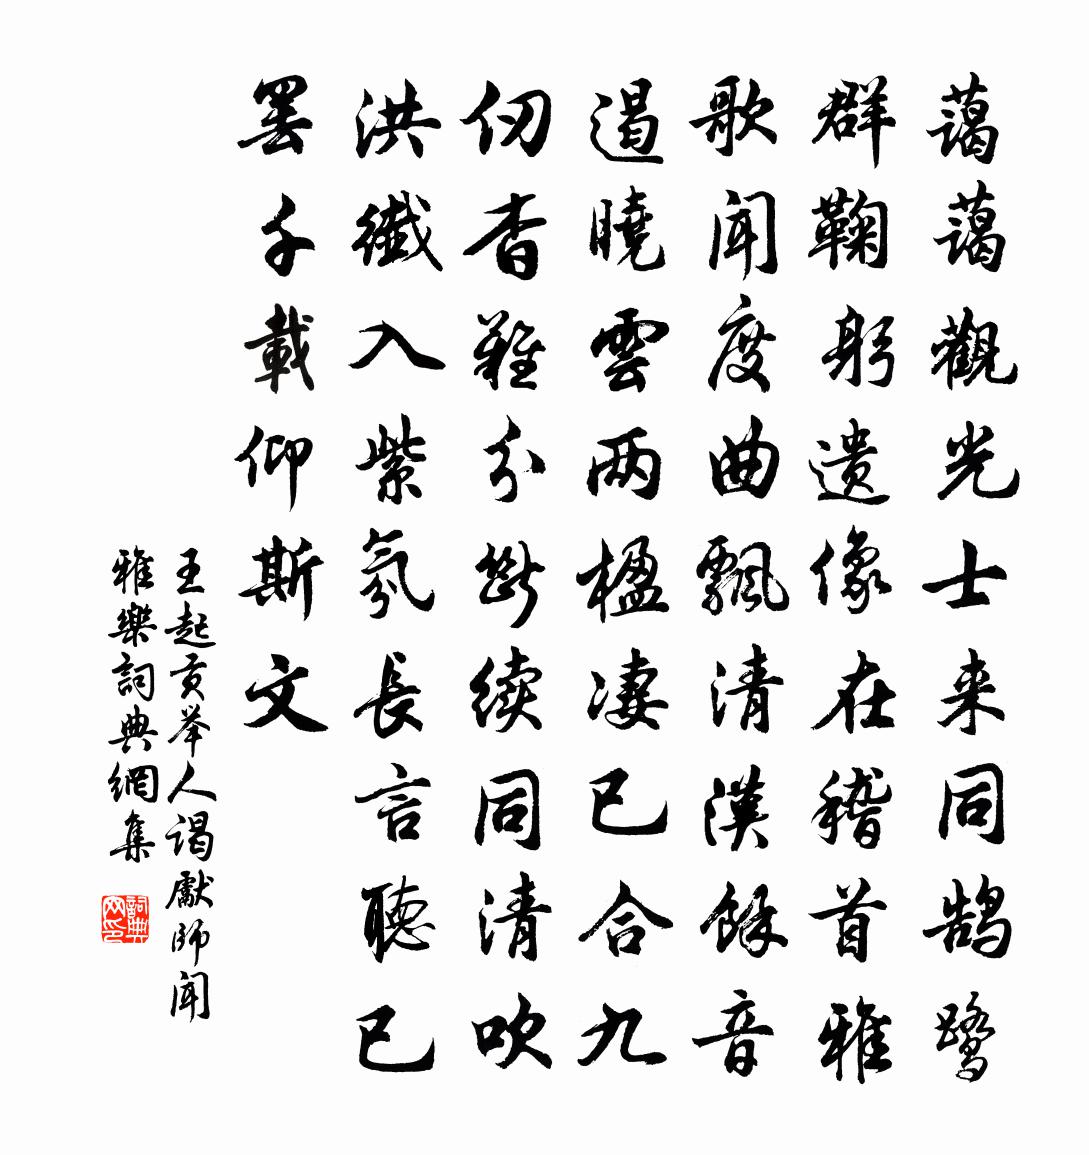 藹藹觀光士来同鹄鹭
群鞠躬遗像在稽首雅
歌聞度曲飄清漢餘音
遏曉雲两楹凄已合九
仞杳難分斷续同清吹
洪纖入紫氛長言聽已
罢千載仰斯文
王起贡举人谒獻師闻
雅樂詞典網集
詞典网印